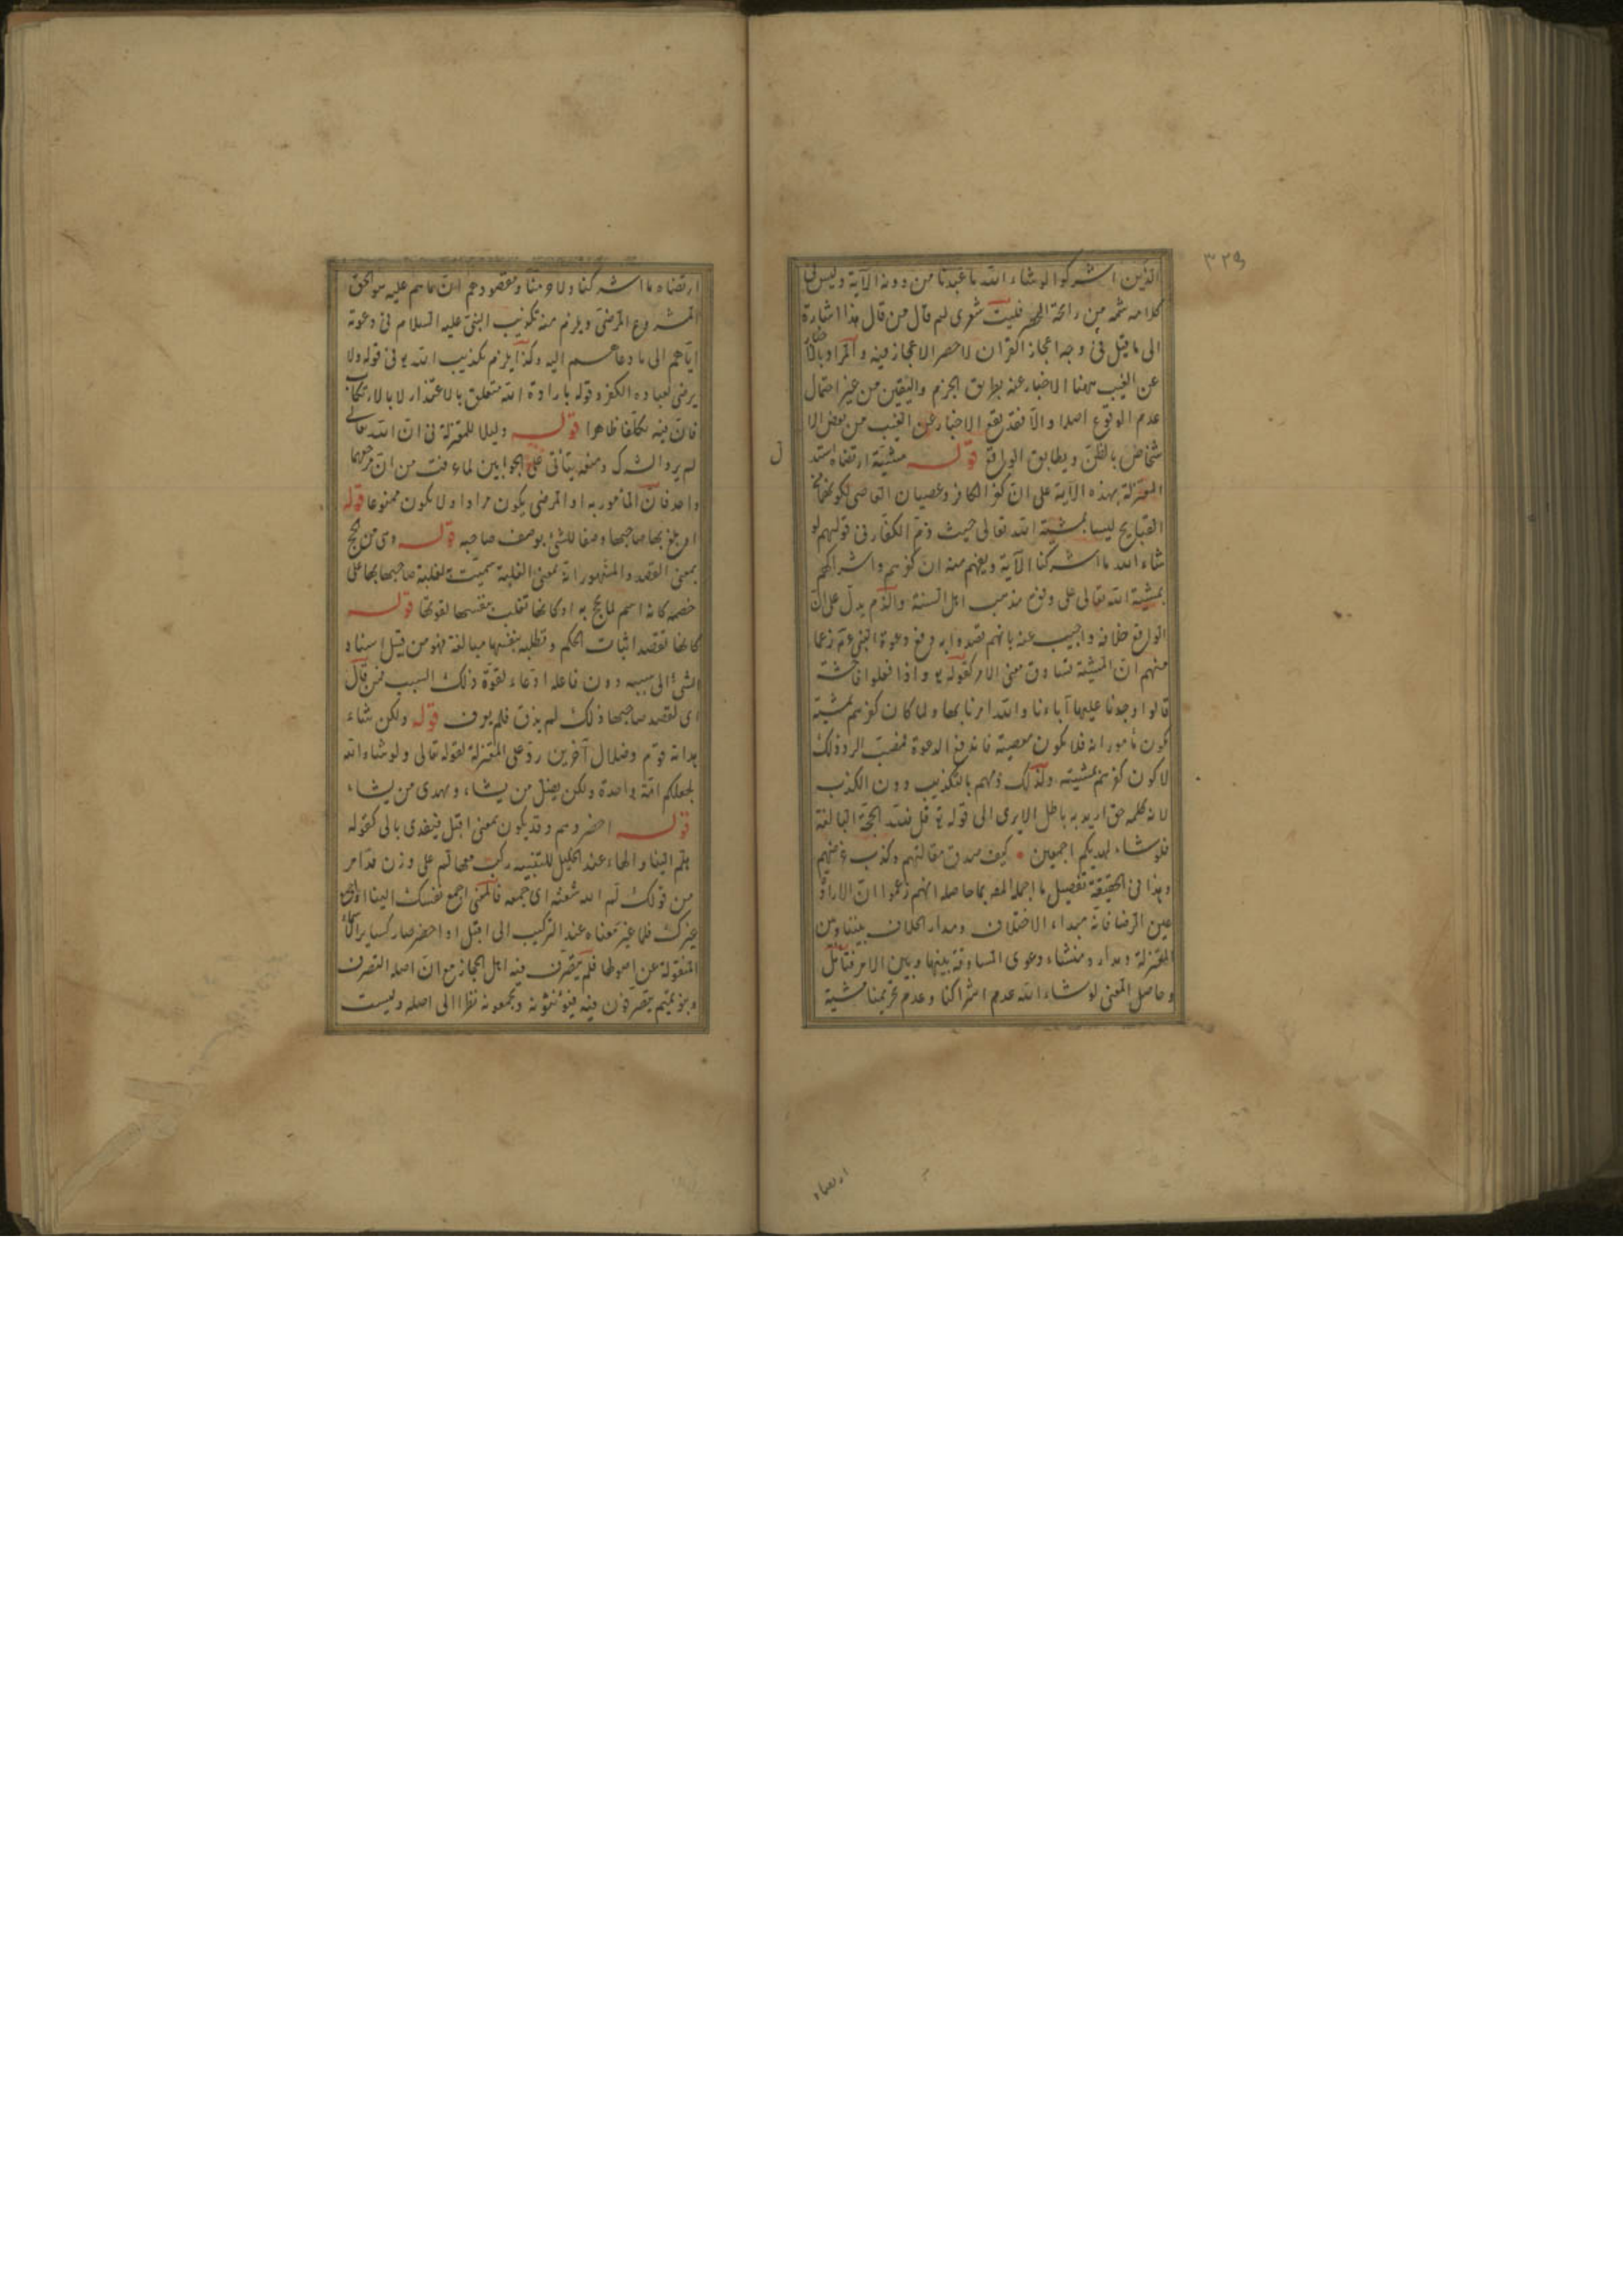 ٣٢٩
الذين اشركوا لو شاء الله ما عبدنا من دونه الآية وليس في
كلامه شمة من رائحة الحصر فليت شعرى لم قال من قال هذا اشارة
الى ما قيل في وجه اعجاز القران لا حصر الاعجاز فيه والمراد بالاخبار
عن الغيب ههنا الاخبار عنه بطريق الجزم واليقين من غير احتمال
عدم الوقوع اصلا والا فقد يقع الاخبار عن الغيب من بعض الا
شخاص بالظن ويطابق الواقع قوله مشيئة ارتضاه استد
ل
المعتزلة بهذه الآية على ان كفر الكافر وعصيان العاصى لكونهما من
القبايح ليسا بمشية الله تعالى حيث ذم الكفار في قولهم لو
شاء الله ما اشركنا الآية ويفهم منه ان كفرهم واشراكهم
بمشية الله تعالى على وفق مذهب اهل السنة والذم يدل على ان
الواقع خلافه واجيب عنه بانهم قصدوا به دفع دعوة النبي عم زعما
منهم ان المشية تساوق معنى الامر كقوله تع واذا فعلوا فاحشة
قالوا وجدنا عليها آباءنا والله امرنا بها ولما كان كفرهم بمشية
كون مامورا به فلا يكون معصية فاندفع الدعوة فمصب الرد ذلك
لا كون كفرهم بمشيته ولذلك ذمهم بالتكذيب دون الكذب
لانه كلمة حق اريد به باطل الا يرى الى قوله تع قل فلله الحجة البالغة
فلو شاء لهديكم اجمعين كيف صدق مقالتهم وكذب غرضهم
وهذا في الحقيقة تفصيل ما اجمله المص بما حاصله انهم زعموا ان الارادة
عين الرضا فانه مبداء الاختلاف ومدار الخلاف بيننا وبين
المعتزلة ومدار ومنشاء دعوى المساوقة بينها وبين الامر فتامل
وحاصل المعنى لو شاء الله عدم اشراكنا وعدم تحريمنا مشية
ارتضاه
ارتضاه ما اشركنا ولا حرمنا ومقصودهم ان ما هم عليه هو الحق
المشروع المرضى ويلزم منه تكذيب النبي عليه السلام في دعوته
اياهم الى ما دعاهم اليه وكذا يلزم تكذيب الله تع في قوله ولا
يرضى لعباده الكفر وقوله بارادة الله متعلق بالاعتذار لا بالارتكاب
فان فيه تكلفا ظاهرا قوله دليلا للمعتزلة في ان الله تعالى
لم يرد الشرك ومنعه يتأتى على الجوابين لما عرفت من ان مرجعهما
واحد فان المأمور به او المرضى يكون مرادا ولا يكون ممنوعا قوله
او بلغ بها صاحبها وصفا للشئ بوصف صاحبه قوله وهى من الحج
بمعنى القصد والمشهور انه بمعنى الغلبة سميت لغلبة صاحبها بها على
خصمه كانه اسم لما يحج به او كانها تغلب بنفسها لقوتها قوله
كانها تقصد اثبات الحكم وتطلبه بنفسها مبالغة فهو من قبيل اسناد
الشئ الى سببه دون فاعله ادعاء لقوة ذلك السبب فمن قال
اى لقصد صاحبها ذلك لم يذق فلم يعرف قوله ولكن شاء
هداية قوم وضلال آخرين رد على المعتزلة لقوله تعالى ولو شاء الله
لجعلكم امة واحدة ولكن يضل من يشاء ويهدى من يشاء
قوله احضروهم وقد يكون بمعنى اقبل فيتعدى بالى كقوله
هلم الينا والهاء عند الخليل للتنبيه ركبت معها لم على وزن مد امر
من قولك لم الله شعثه اى جمعه فالمعنى اجمع نفسك الينا او
غيرك فلما غير معناه عند التركيب الى اقبل او احضر صار كساير
المنقولة عن اصولها فلم يتصرف فيه اهل الحجاز مع ان اصله التصرف
وبنو تميم يتصرفون فيه فيؤنثونه ويجمعونه نظرا الى اصله وليست